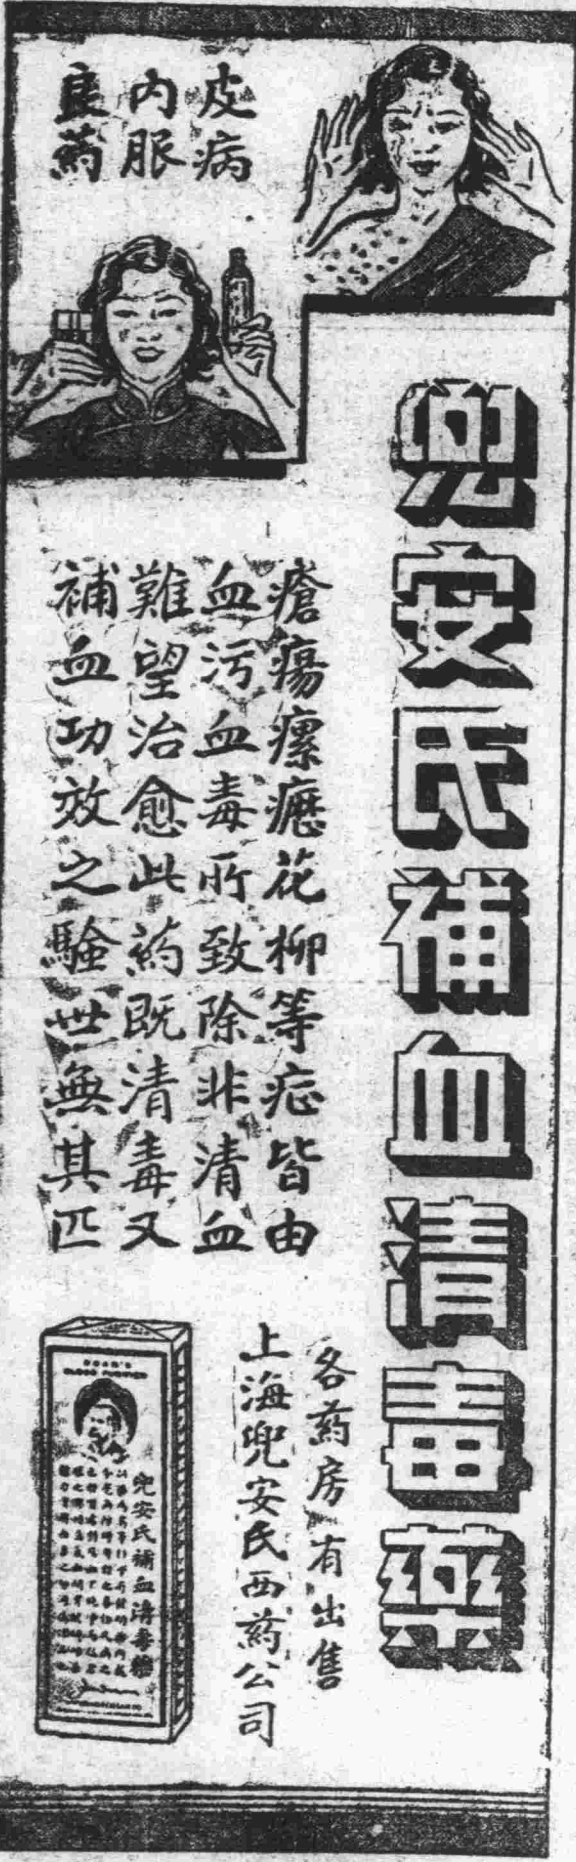 皮病
內服
良药
兜安氏補血清毒藥
瘡瘍瘰癧花柳等症皆由
血污血毒所致除非清血
難望治愈此药既清毒又
補血功效之騐世無其匹
各药房有出售
上海兜安氏西药公司
兜安氏補血清毒藥